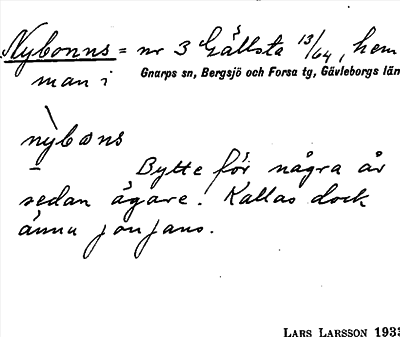 Nybonns = nr 3 Gällsta 13/64, hem
man i Gnarps sn, Bergsjö och Forsa tg, Gävleborgs län
nỳbɷns
Bytte för några år
sedan ägare. Kallas dock
ännu jonjans.
LARS LARSSON 1933